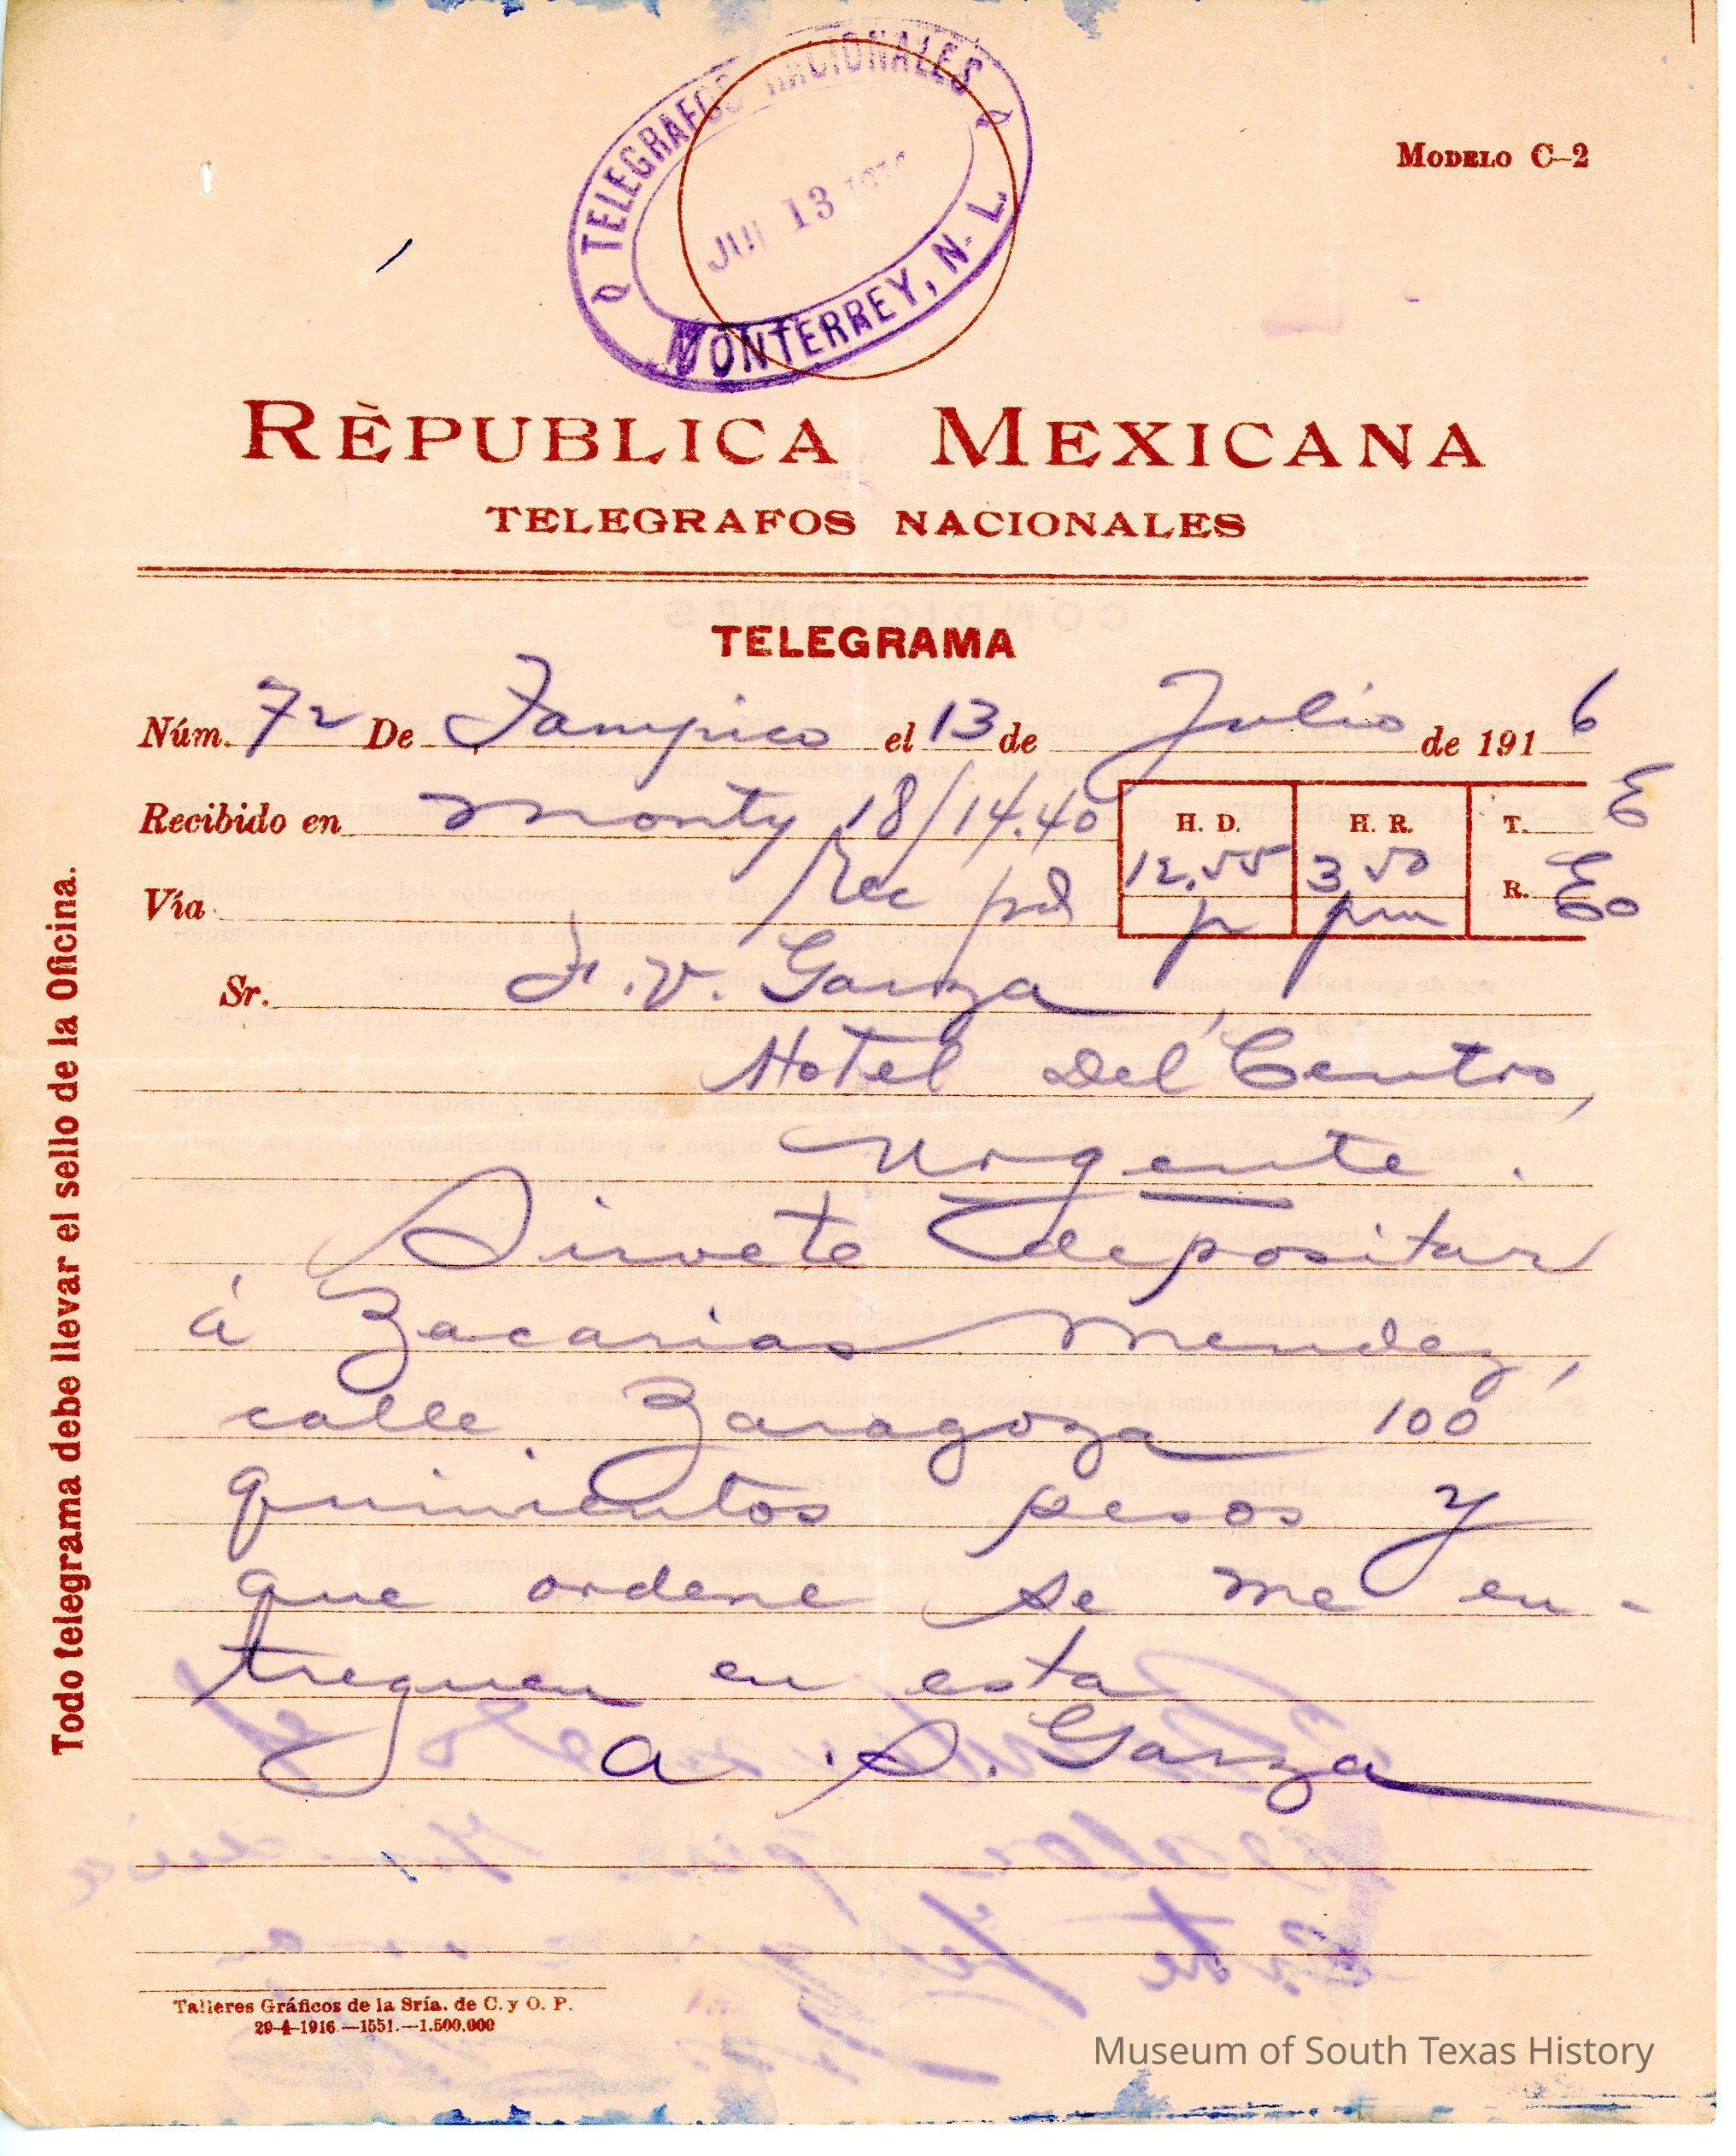 TELEGRAFOS NACIONALES
JUL 13
MONTERREY, N. L.
MODELO C-2
RÈPUBLICA MEXICANA
TELEGRAFOS NACIONALES
TELEGRAMA
Núm. 72 De Tampico el 13 de Julio de 1916
Recibido en Monty 18/14.40
H. D. H. R. T. E
12.55 3 50
Vía Rec pd
p pm R. Eo
Sr. F. V. Garza,
Hotel Del Centro,
Urgente.
Sirvete depositar
á Zacarias Mendez,
calle Zaragoza 100
quinientos pesos y
que ordene se me en-
treguen en esta
A. S. Garza
Todo telegrama debe llevar el sello de la Oficina.
Talleres Gráficos de la Sría. de C. y O. P.
29-4-1916.—1551.—1.500.000
Museum of South Texas History